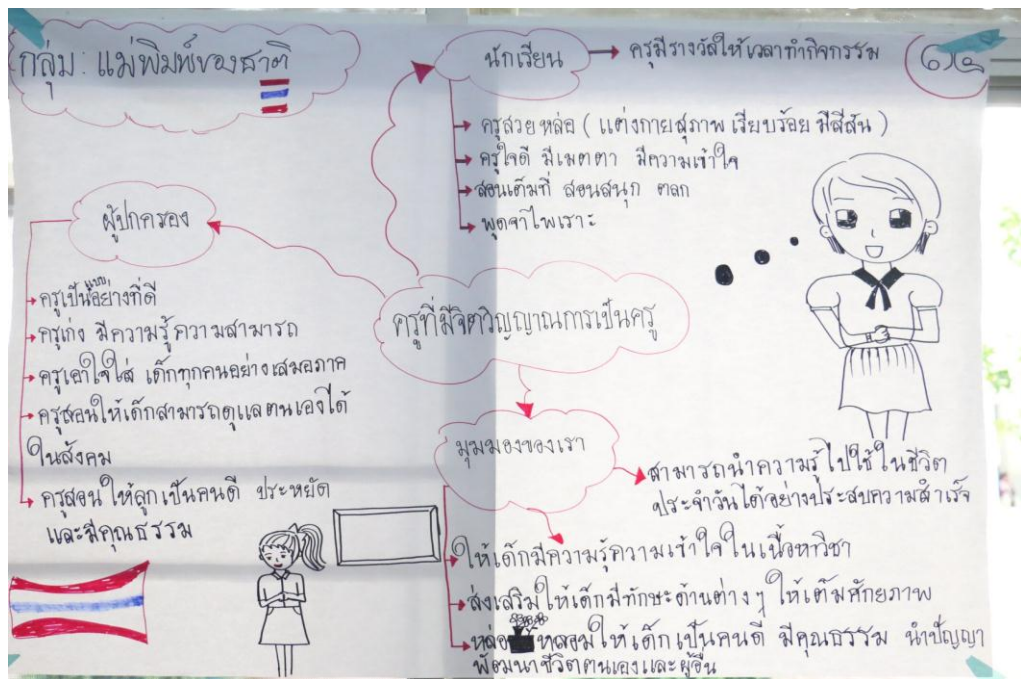 กลุ่ม : แม่พิมพ์ของชาติ
นักเรียน
ครูมีรางวัลให้เวลาทำกิจกรรม
๑๕
ครูสวย หล่อ ( แต่งกายสุภาพ เรียบร้อย มีสีสัน )
ครูใจดี มีเมตตา มีความเข้าใจ
สอนเต็มที่ สอนสนุก ตลก
พูดจาไพเราะ
ผู้ปกครอง
ครูเป็นแบบอย่างที่ดี
ครูเก่ง มีความรู้ความสามารถ
ครูเอาใจใส่ เด็กทุกคนอย่างเสมอภาค
ครูสอนให้เด็กสามารถดูแลตนเองได้
ในสังคม
ครูสอนให้ลูกเป็นคนดี ประหยัด
และมีคุณธรรม
ครูที่มีจิตวิญญาณการเป็นครู
มุมมองของเรา
สามารถนำความรู้ไปใช้ในชีวิต
ประจำวันได้อย่างประสบความสำเร็จ
ให้เด็กมีความรู้ความเข้าใจในเนื้อหาวิชา
ส่งเสริมให้เด็กมีทักษะด้านต่างๆ ให้เต็มศักยภาพ
หล่อหลอมให้เด็กเป็นคนดี มีคุณธรรม นำปัญญา
พัฒนาชีวิตตนเองและผู้อื่น